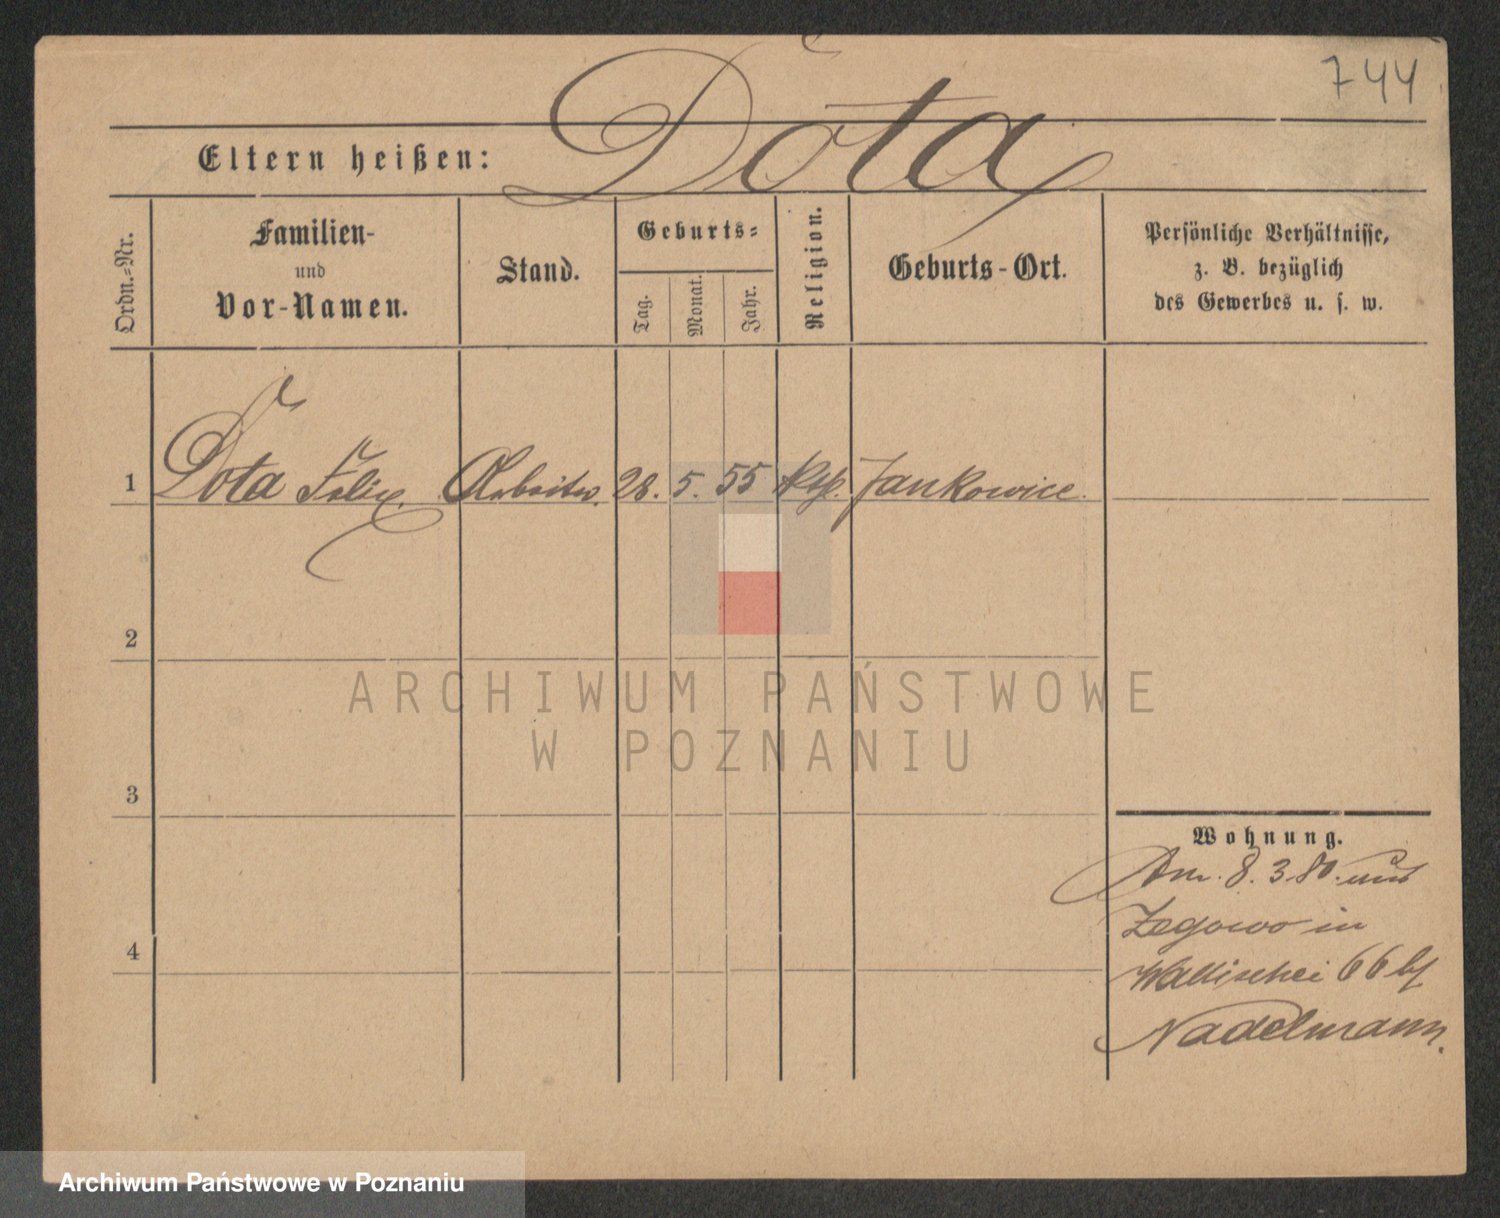 744
Dota
Eltern heißen:
Ordn.-Nr.
Familien-
und
Vor-Namen.
Stand.
Geburts-
Tag.
Monat.
Jahr.
Religion.
Geburts-Ort.
Persönliche Verhältnisse,
z. B. bezüglich
des Gewerbes u. s. w.
1 Dota Felix Arbeiter. 28. 5. 55 kth. Jankowice.
2
3
4
ARCHIWUM PAŃSTWOWE
W POZNANIU
Wohnung.
Am. 8. 3. 80. aus
Zegowo in
Wallischei 66 bf
Nadelmann.
Archiwum Państwowe w Poznaniu